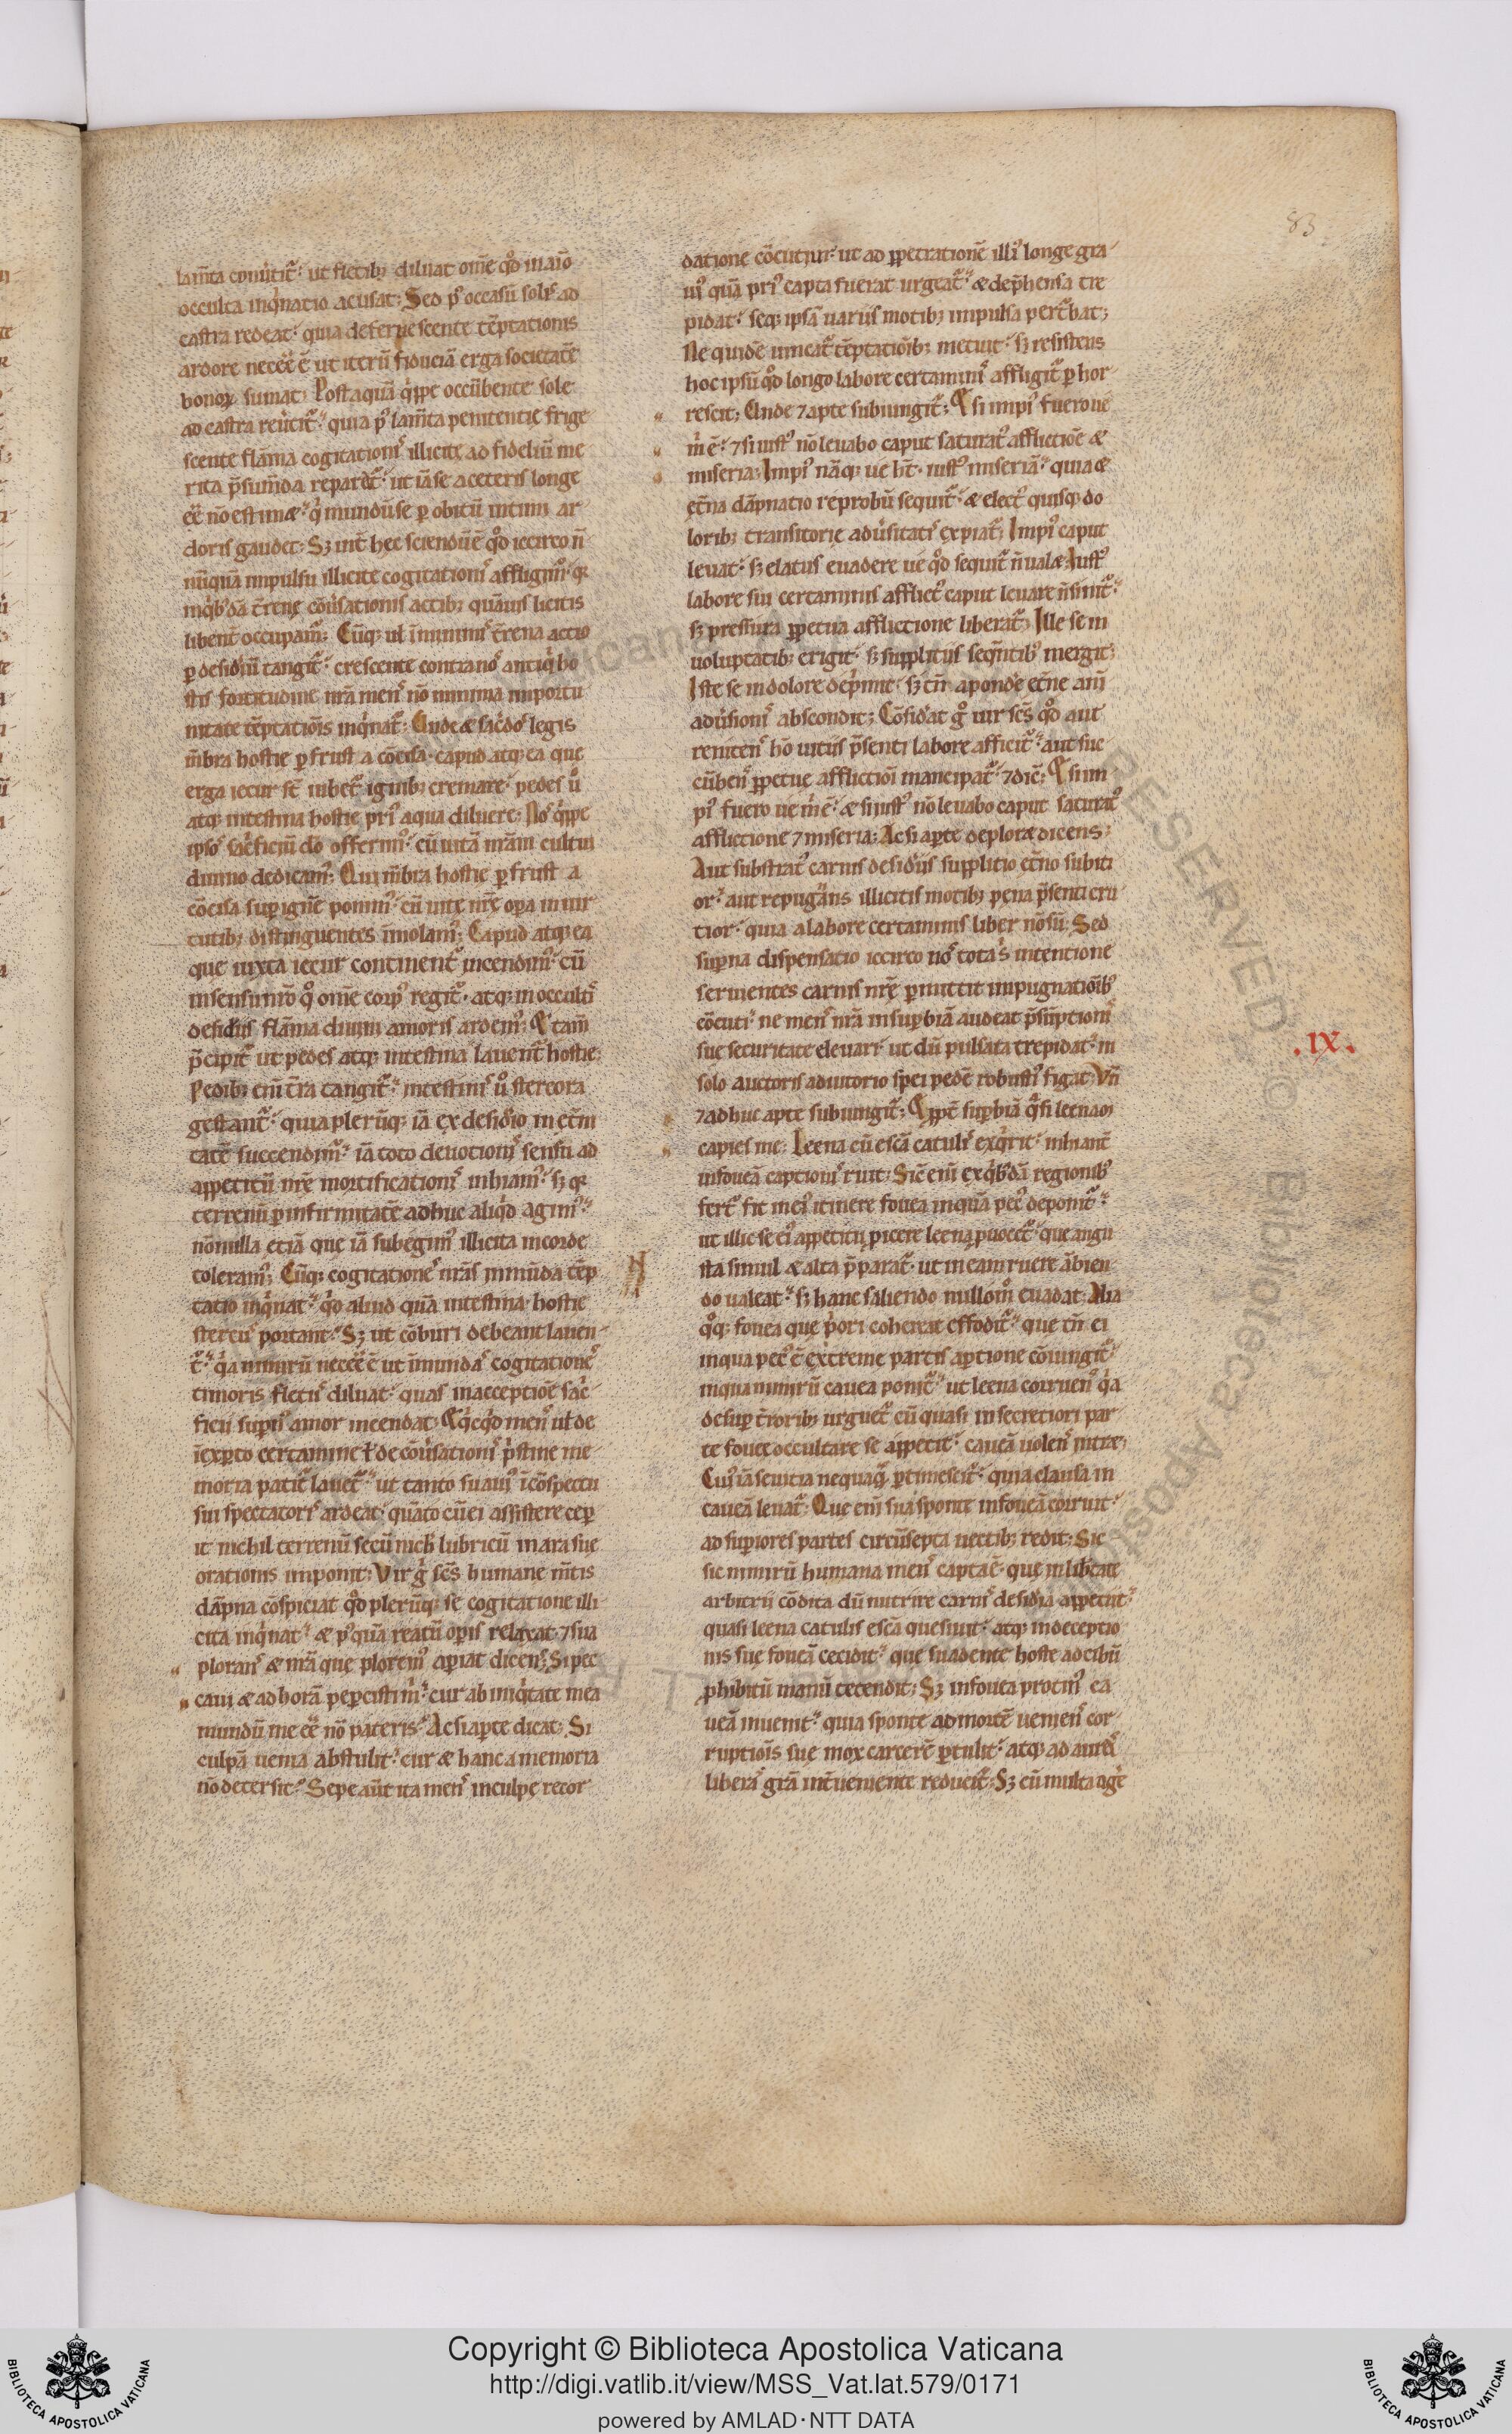 83
lam̄ta conu̾titᷣ. ut fletibꝫ diluat om̄e qd̾ maiō
occulta inqͥnatio acusat; Sed pꝰ occasū solis ad
castra redeat. quia deferuescente tēptationis
ardore necēe ē ut iterū fiduciā erga societatē
bonoꝝ sumat; Postaquā qͥppe occūbente sole
ad castra reu̾titᷣ. quia pꝰ lam̄ta penitentię frige
scente flāma cogitationis illicitę ad fideliū me
rita p̄sum̄da reparatᷣ. ut iā se a ceteris longe
ēe nō estimæ. qͥ mundū se ꝑ obitū intimi ar
doris gaudet; Sꝫ int̄ hec sciendū ē qd̾ iccirco n̄
nūquā impulsu illicite cogitationis affligimᷣ. qꝛ
inqͥbꝰdā t̄renę cōu̾sationis actibꝫ quāuis licitis
libent̄ occupamᷣ; Cūqꝫ ul̄ in minimis t̄rena actio
ꝑ desid̾iū tangitᷣ. crescente contra nos antiqͥ ho
stis fortitudine nr̄a mens nō minima importu
nitate tēptatiōis inqͥnatᷣ; Unde æ sac̾dos legis
m̄bra hostię ꝑ frust a cōcisa. capud atqꝫ ea que
erga iecur st̄ iubetᷣ ignibꝫ cremare. pedes u̾
atqꝫ intestina hostie priꝰ aqua diluere; Nos qͥppe
ipsos sac̾ficiū do offerimᷣ. cū uitā nr̄am cultui
diuino dedicamᷣ; Qui m̄bra hostie ꝑ frust a
cōcisa suꝑ ignē ponimᷣ. cū uitę nr̄ę oꝑa in uir
tutibꝫ distinguentes īmolamᷣ; Capud atqꝫ ea
que iuxta iecur continentᷣ incendimᷣ. cū
in sensu nr̄o qͦ om̄e corpꝰ regitᷣ. atqꝫ in occultis
desid̾iis flāma diuini amoris ardemᷣ; Et tam̄
p̄cipitᷣ ut pedes atqꝫ intestina lauent̄ hostie;
Pedibꝫ eni t̄ra tangitᷣ. intestinis u̾ stercora
gestantᷣ. quia plerūqꝫ iā ex desid̾io in et̄ni
tatē succendimᷣ. iā toto deuotionis sensu ad
appetitū nr̄ę mortificationis inhiamᷣ. sꝫ qꝛ
terrenū ꝑ infirmitatē adhuc aliqͥd agimᷣ.
nōnulla etiā que iā subegimᷣ illicita in corde
toleramᷣ; Cūqꝫ cogitationes nr̄as inmūda tēp
tatio inqͥnat. qͥd aliud quā intestina hostie
stercus portant; Sꝫ ut cōburi debeant lauen
tᷣ. qͥa nimirū necēe ē ut īmundas cogitationes
timoris fletus diluat. quas in acceptiōe sac̾
ficii suꝑnus amor incendat; Et qͥcqͥd mens ul̄ de
īexꝑto certamine ł de cōu̾sationis pͥstine me
moria patitᷣ lauetᷣ. ut tanto suauiꝰ ī cōspectu
sui spectatoris ardeat. quāto cū ei assistere ceꝑ
it nichil terrenū secū nichil lubricū in ara suę
orationis imponit; Vir gͦ sc̄s humane mītis
dāpna cōspiciat qd̾ plerūqꝫ se cogitatione illi
cita inqͥnat. æ pꝰquā reatū opis relaxat. ⁊ sua
plorans æ nr̄a quę ploremᷣ aꝑiat dicens; Si pec
caui æ ad horā peꝑcisti mͥ. cur ab iniqͥtate mea
mundū me ēe nō pateris; Ac si aꝑte dicat; Si
culpā uenia abstulit. cur æ hanc a memoria
nō detersit; Sepe aūt ita mens in culpę recor
N
datione cōcutitur. ut ad ꝑpetrationē illiꝰ longe gra
uiꝰ quā priꝰ capta fuerat urgeatᷣ. æ dep̄hensa tre
pidat. seqꝫ ipsā uariis motibꝫ impulsa pert̾bat;
Ne quidē uincatᷣ tēptatiōibꝫ metuit. sꝫ resistens
hoc ipsū qd̾ longo labore certaminis affligitᷣ ꝑhor
rescit; Unde ⁊ apte subiungitᷣ; Et si impiꝰ fuero ue
mͥ ē. ⁊ si iustꝰ nō leuabo caput saturatꝰ afflictiōe æ
miseria; Impiꝰ nāqꝫ ue ht̄. iustꝰ miseriā. quia æ
ęt̄na dāpnatio reprobū sequitᷣ. æ electꝰ quisqꝫ do
loribꝫ transitorie adu̾sitatis expiatᷣ; Impiꝰ caput
leuat. sꝫ elatus euadere ue qd̾ sequitᷣ n̄ ualæ; Iustꝰ
labore sui certaminis afflictꝰ caput leuare n̄ sinitᷣ.
sꝫ pressura ꝑpetua afflictione liberatᷣ; Ille se in
uoluptatibꝫ erigit. sꝫ suppliciis seqn̄tibꝰ mergit;
Iste se in dolore depͥmit. sꝫ tn̄ a pondē et̄ne anī
adu̾sionis abscondit; Cōsid̾at gͦ uir sc̄s qd̾ aut
renitens hō uitiis p̄senti labore afficitᷣ. aut suc
cūbens ꝑpetue afflictiōi mancipatᷣ. ⁊ dic̄; Et si im
piꝰ fuero ue mͥ ē. æ si iustꝰ nō leuabo caput saturatꝰ
afflictione ⁊ miseria; Ac si aꝑte deploræ dicens;
Aut substratꝰ carnis desid̾iis supplicio et̄no subici
or. aut repugnans illicitis motibꝫ pena p̄senti cru
cior. quia a labore certaminis liber nō sū; Sed
suꝑna dispensatio iccirco nos tota s̾ intentione
seruientes carnis nr̄ę ꝑmittit impugnatiōibꝰ
cōcuti. ne mens nr̄a in suꝑbiā audeat p̄sūptionis
sue securitate eleuari. ut dū pulsata trepidat. in
solo auctoris adiutorio spei pedē robustiꝰ figat; Vn̄
.IX.
⁊ adhuc apte subiungitᷣ; Et ꝓpt̄ suꝑbiā qͣsi leenam
capies me; Leena cū escā catulis exqͥrit. inhiant̄
in foueā captionis ruit; Sic̄ eni ex qͥbꝰdā regionibꝰ
fertᷣ. fit in eiꝰ itinere fouea in quā pecꝰ deponitᷣ.
ut illic se eiꝰ appetitu ꝓicere leena ꝓuocetᷣ. que angu
sta simul æ alta p̄paratᷣ. ut in eam ruere ābien
do ualeat. sꝫ hanc saliendo nullom̊ euadat; Alia
qͦqꝫ fouea que pͥori coherat effoditᷣ. que tn̄ ei
in qua pecꝰ ē extreme partis aꝑtione cōiungitᷣ.
in qua nimirū cauea ponitᷣ. ut leena corruens qͥa
desuꝑ t̄roribꝫ urguetᷣ cū quasi in secretiori par
te fouee occultare se appetit. caueā uolens intræ;
Cuiꝰ iā seuitia nequaqᷓ ꝑtimescitᷣ. quia clausa in
caueā leuatᷣ; Que eni sua sponte in foueā corruit.
ad suꝑiores partes circūsepta uectibꝫ redit; Sic
sic nimirū humana mens capta ē. que in lib̾tate
arbitrii cōdita dū nutrire carnis desid̾ia appetiit.
quasi leena catulis escā quesiuit. atqꝫ in deceptio
nis suę foueā cecidit. que suadente hoste ad cibū
ꝓhibitū manū tetendit; Sꝫ in fouea protinꝰ ca
ueā inuenit. quia sponte ad mortē ueniens cor
ruptiōis suę mox carcerē ꝑtulit. atqꝫ ad aurās
liberas grā int̄ueniente reducitᷣ; Sꝫ cū multa age̾
Copyright © Biblioteca Apostolica Vaticana
http://digi.vatlib.it/view/MSS_Vat.lat.579/0171
powered by AMLAD·NTT DATA